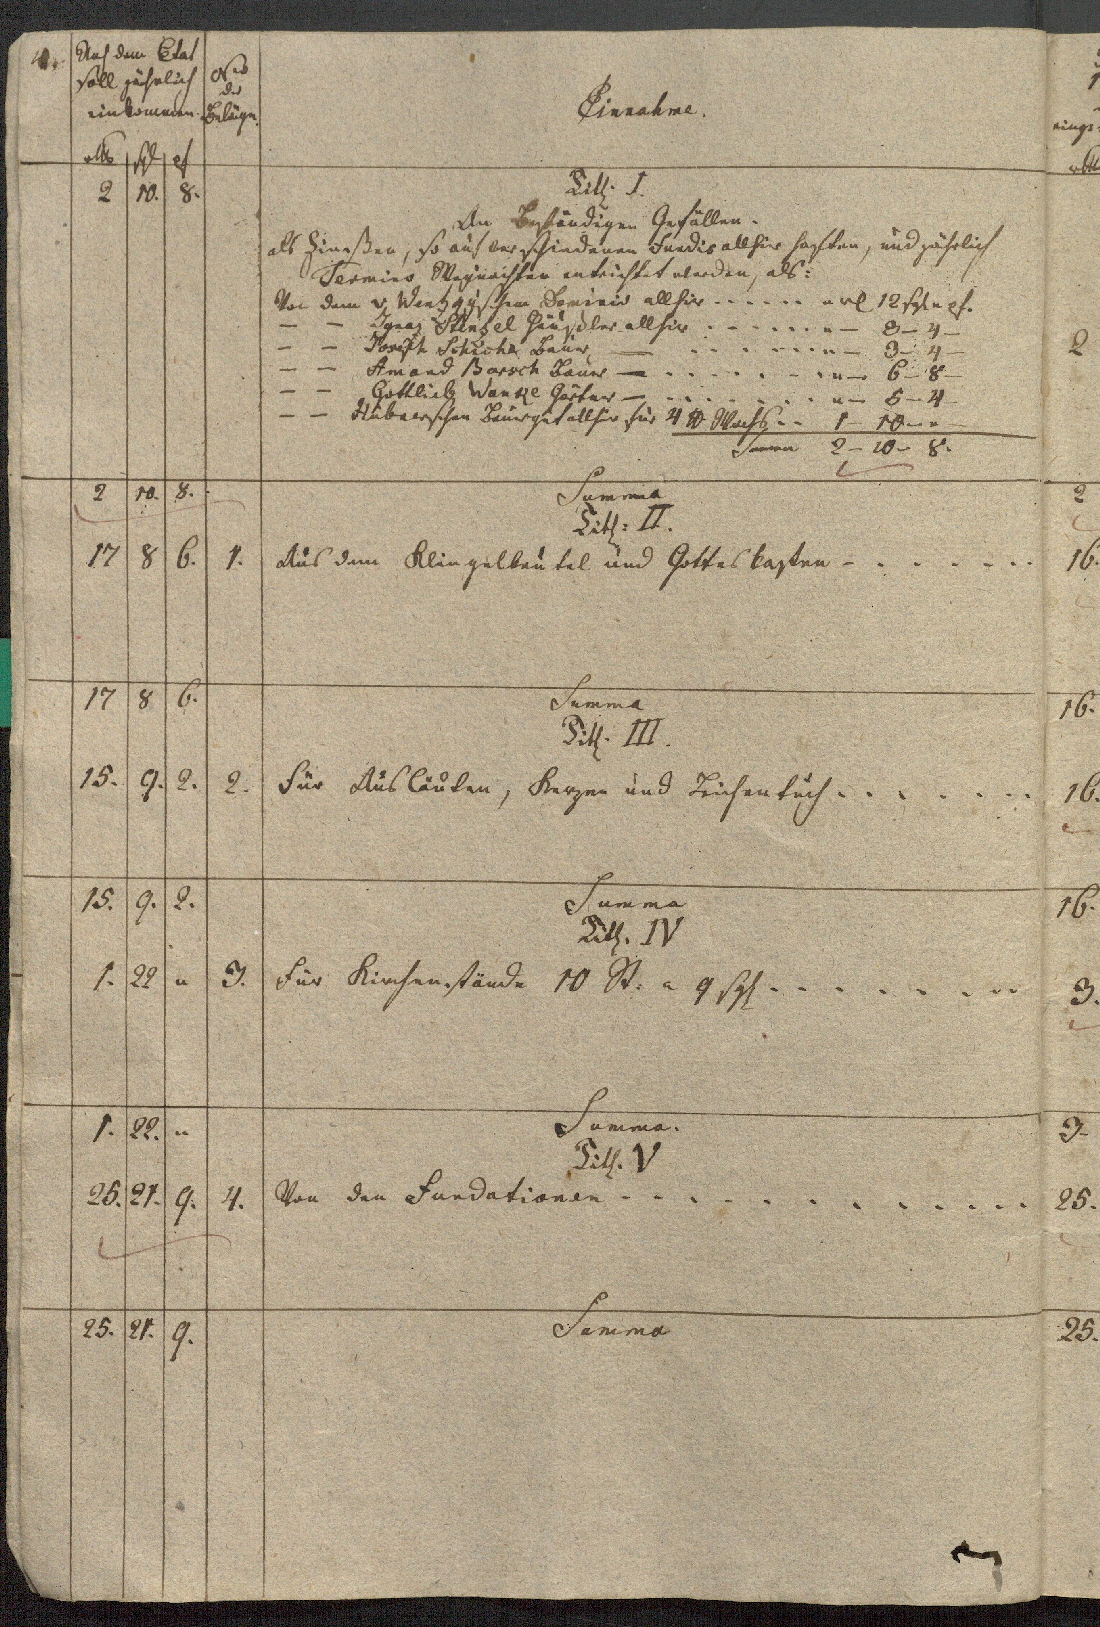 Nach dem Etat
soll jährlich
einkommen.
Nro
der
Beläge.
Einnahme.
rtl sgl pf
2 10. 8. Tith. I.
An Beständigen Gefällen.
als Zinnßen, so auf verschiedenen Fundis allhier haften, und jährlich
Termino Weynachten entrichtet werden, als:
Von dem v. Wentzkyschen Dominio allhier - - - - - " rtl 12 sgl " pf.
— — Ignaz Stenzel Häusler allhier - - - - - - " — 3 — 4 —
— — Joseph Scholz Bauer — - - - - - " — 3 — 4 —
— — Amand Barsch Bauer — - - - - - " — 6 — 8 —
— — Gottlieb Wanke Gärtner — - - - - - " — 5 — 4 —
— — Hübnerschen Bauergut allhier für 4 ℔ Wachs - - 1 — 10 — " —
Summa 2 — 10 — 8.
2 10. 8. Summa
Tith: II.
17 8 6. 1. Aus dem Klingelbeutel und Gotteskasten - - - - - - -
17 8 6. Summa
Tith. III.
15. 9. 2. 2. Für Ausläuten, Kerzen und Leichentuch - - - - - - -
15. 9. 2. Summa
Tith. IV
1. 22 " 3. Für Kirchenstände 10 St. a 9 sgl - - - - - - - -
1. 22. " Summa.
Tith. V
25. 21. 9. 4. Von den Fundationen - - - - - - - - - - -
25. 21. 9. Summa
2
2
16.
16.
16.
16.
3.
3.
25.
25.